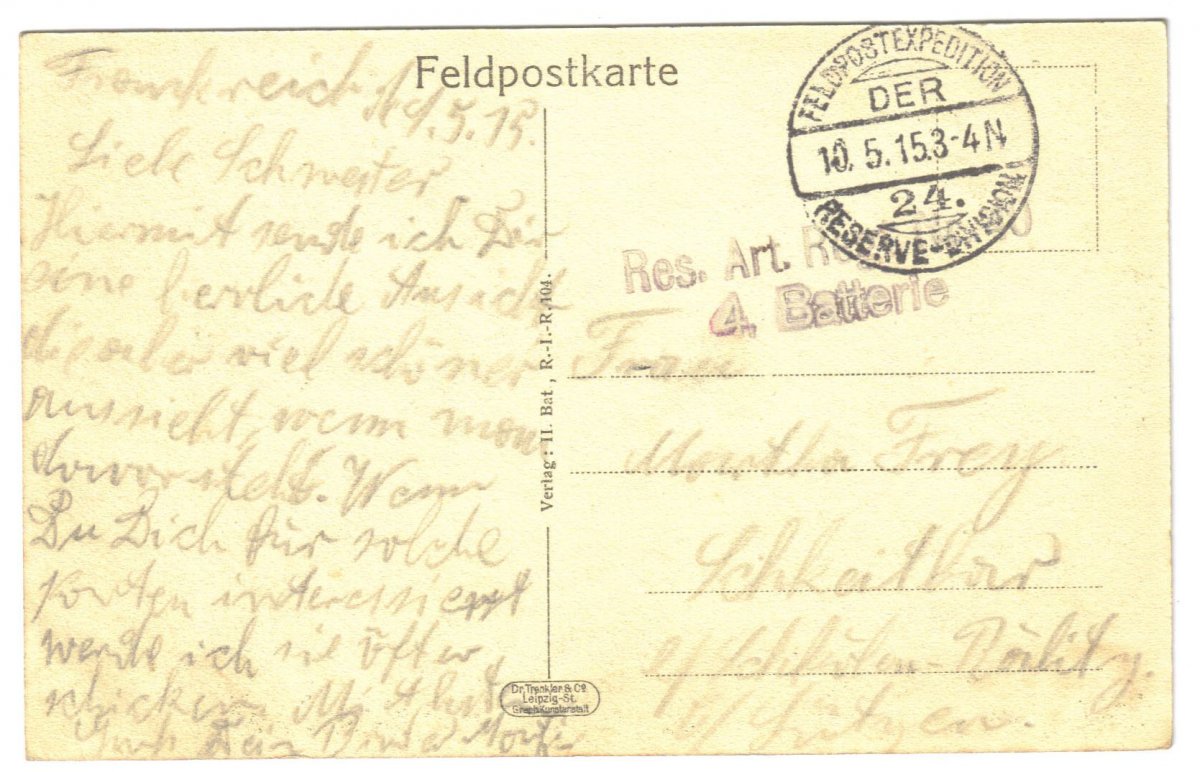 Feldpostkarte
FELDPOSTEXPEDITION
DER
10.5.15.3-4N
24.
RESERVE-DIVISION
Res. Art. Reg
4. Batterie
Frankreich, d. 9.5.15.
Liebe Schwester
Hiermit sende ich Dir
eine herrliche Ansicht
die aber viel schöner
aussieht, wenn man
davorsteht. Wenn
Du Dich für solche
Karten interessierst
werde ich sie öfter
schicken.
Dein Bruder
Verlag: II. Bat., R.-I.-R. 104.
Dr. Trenkler & Co.
Leipzig-St.
Graph. Kunstanstalt
Frau
Martha Frey
Schkeitbar
b/Schkölen-Räpitz
b/Lützen.